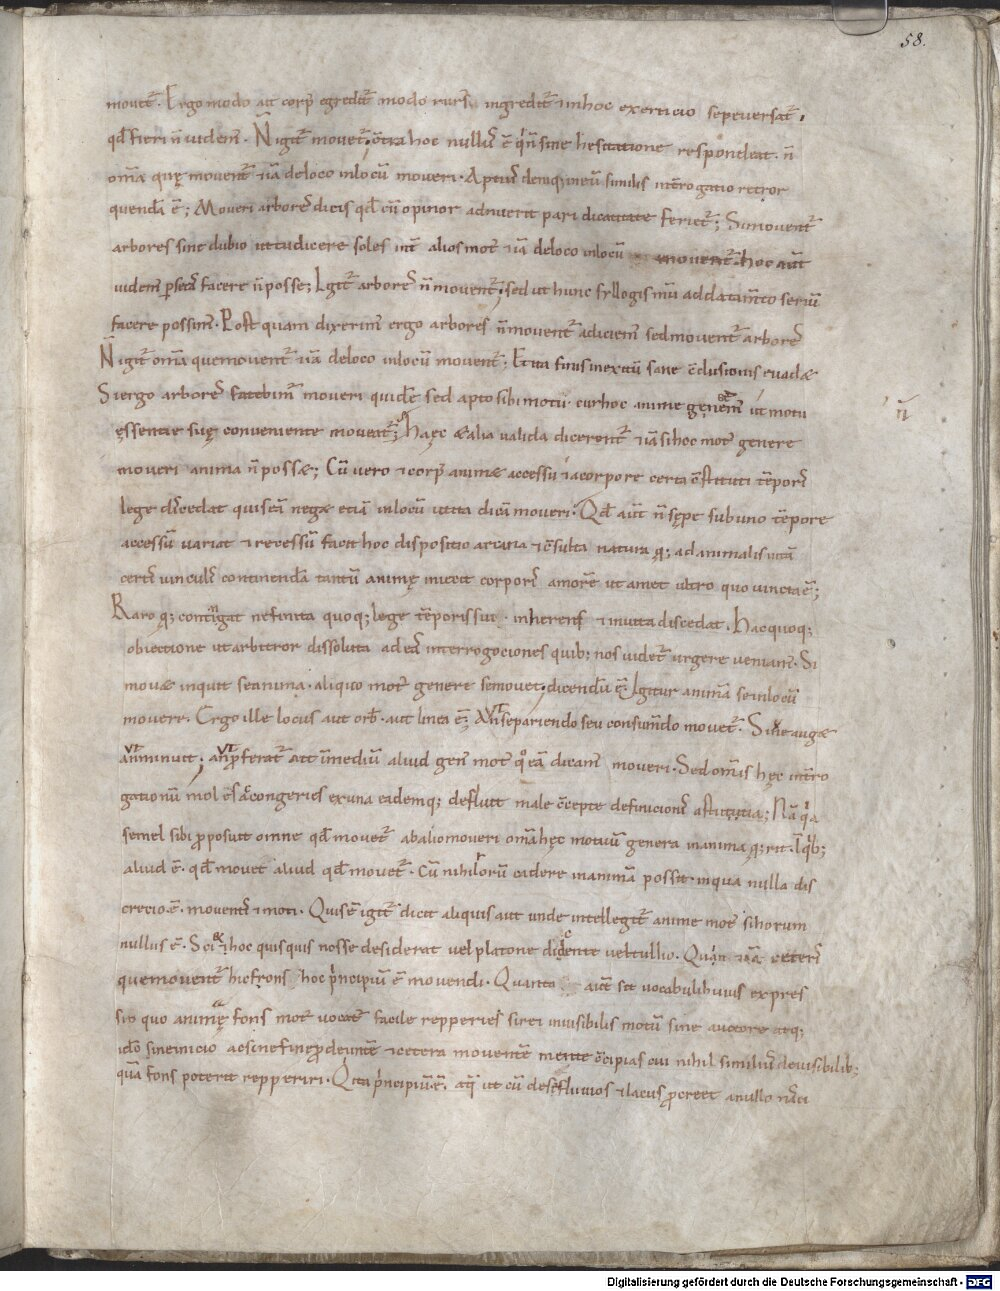 58.
mouet̄. Ergo modo aut corp̄ egredit̄ modo rurs̄ ingredit̄ & in hoc exercicio sepe uersat̄.
qd̄ fieri n̄ uidem̄. N̄ igit̄ mouet̄. cc̄tra hoc nullus ē qui n̄ sine hesitatione respondeat. n̄
om̄ia quę mouent̄ &iā de loco in locū moueri. Aptius deniq; in eū similis int̄rogatio retror
quenda ē; Moueri arbores dicis qd̄ cū opinor adnuerit pari dicacitate feriet̄; Si mouent̄
arbores sine dubio ut tu dicere soles int̄ alios mot̄ &iā de loco in locū mouent̄. hoc aūt
uidem̄ p se eas facere n̄ posse; Igit̄ arbores n̄ mouent̄; sed ut hunc syllogismū additam̄to seriū
facere possim̄. Postquam dixerim̄ ergo arbores n̄ mouent̄ adiciem̄ sed mouent̄ arbores
N̄ igit̄ om̄ia que mouent̄ &iā de loco in locū mouent̄; Et ita finis in exitū sanę c̄clusionis euad&
Si ergo arbores fatebim̄ moueri quidē sed apto sibi motu. cur hoc anime negem̄ ut motu
n̄
essentie suę conueniente moueat̄; Haęc & alia ualida dicerent̄ &iā si hoc mot̄ genere
moueri anima n̄ poss&; Cū uero & corp̄ animae accessu & a corpore certa c̄stituti tēporis
lege discedat quis eā neg& etiā in locū ut ita dicā moueri. Qd̄ aūt n̄ sępe sub uno tēpore
accessū uariat & recessū facit hoc dispositio arcana & c̄sulta naturę q; ad animalis uitā
certis uinculis continendā tantū animę iniecit corporis amorē ut amet ultro quo uincta ē;
Raro q; contingat ne finita quoq; lege tēporis sui inherens & inuita discedat. Hac quoq;
obiectione ut arbitror dissoluta ad eas interrogaciones quib; nos uidet̄ urgere ueniam̄. Si
mou& inquit se anima. aliquo mot̄ genere se mouet; dicendū ē. Igitur animā se in locū
mouere. Ergo ille locus aut orb̄. aut linea ē; An se pariendo seu consum̄do mouet̄. Si ne aug&
an minuit; aut p̄ferat̄ aīt in mediū aliud gen̄ mot̄ qo eā dicam̄ moueri. Sed om̄is hęc int̄ro
gationū molesta c̄congeries ex una eademq; defluit male c̄cepte definicionis astitutia; Nā qa
semel sibi proposuit omne qd̄ mouet̄ ab alio moueri om̄ia hęc motuū genera in anima q;rit. In qb;
aliud ē. qd̄ mouet aliud qd̄ mouet̄. Cū nihil horū cadere in animā possit. in qua nulla dis
crecio ē. mouentis & moti. Quis ē igit̄ dicit aliquis aut unde intellegit̄ anime mot̄ si horum
nullus ē. Sci& hoc quisquis nosse desiderat uel platone dicente uel tullio. Quin &iā ceteris
que mouent̄ hic frons hoc principiū ē mouendi. Quanta aūt sit uocabuli huius expres
sio quo animę fons mot̄ uocat̄ facile repperies si rei inuisibilis motū sine auctore atq;
ido sine inicio ac sine fine p̄deuntē & cetera mouentē mente c̄cipias cui nihil similius de uisibilib;
quā fons poterit repperiri. Qui ita principiū ē. aq̄ ut cū de se fluuios & lacus procreet a nullo nasci